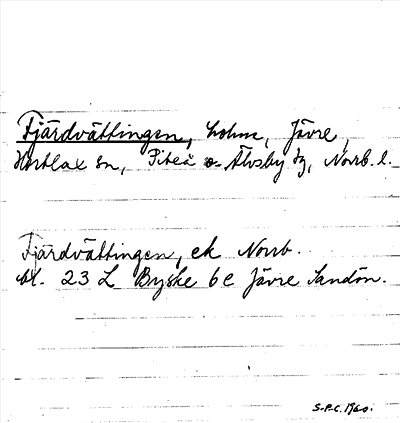 Fjärdvättingen, holme, Jävre,
Hortlax sn, Piteå o. Älvsby tg, Norrb. l.
Fjärdvättingen, ek Norrb.
bl. 23 L Byske 6e Jävre Sandön.
S.P.C. 1960.